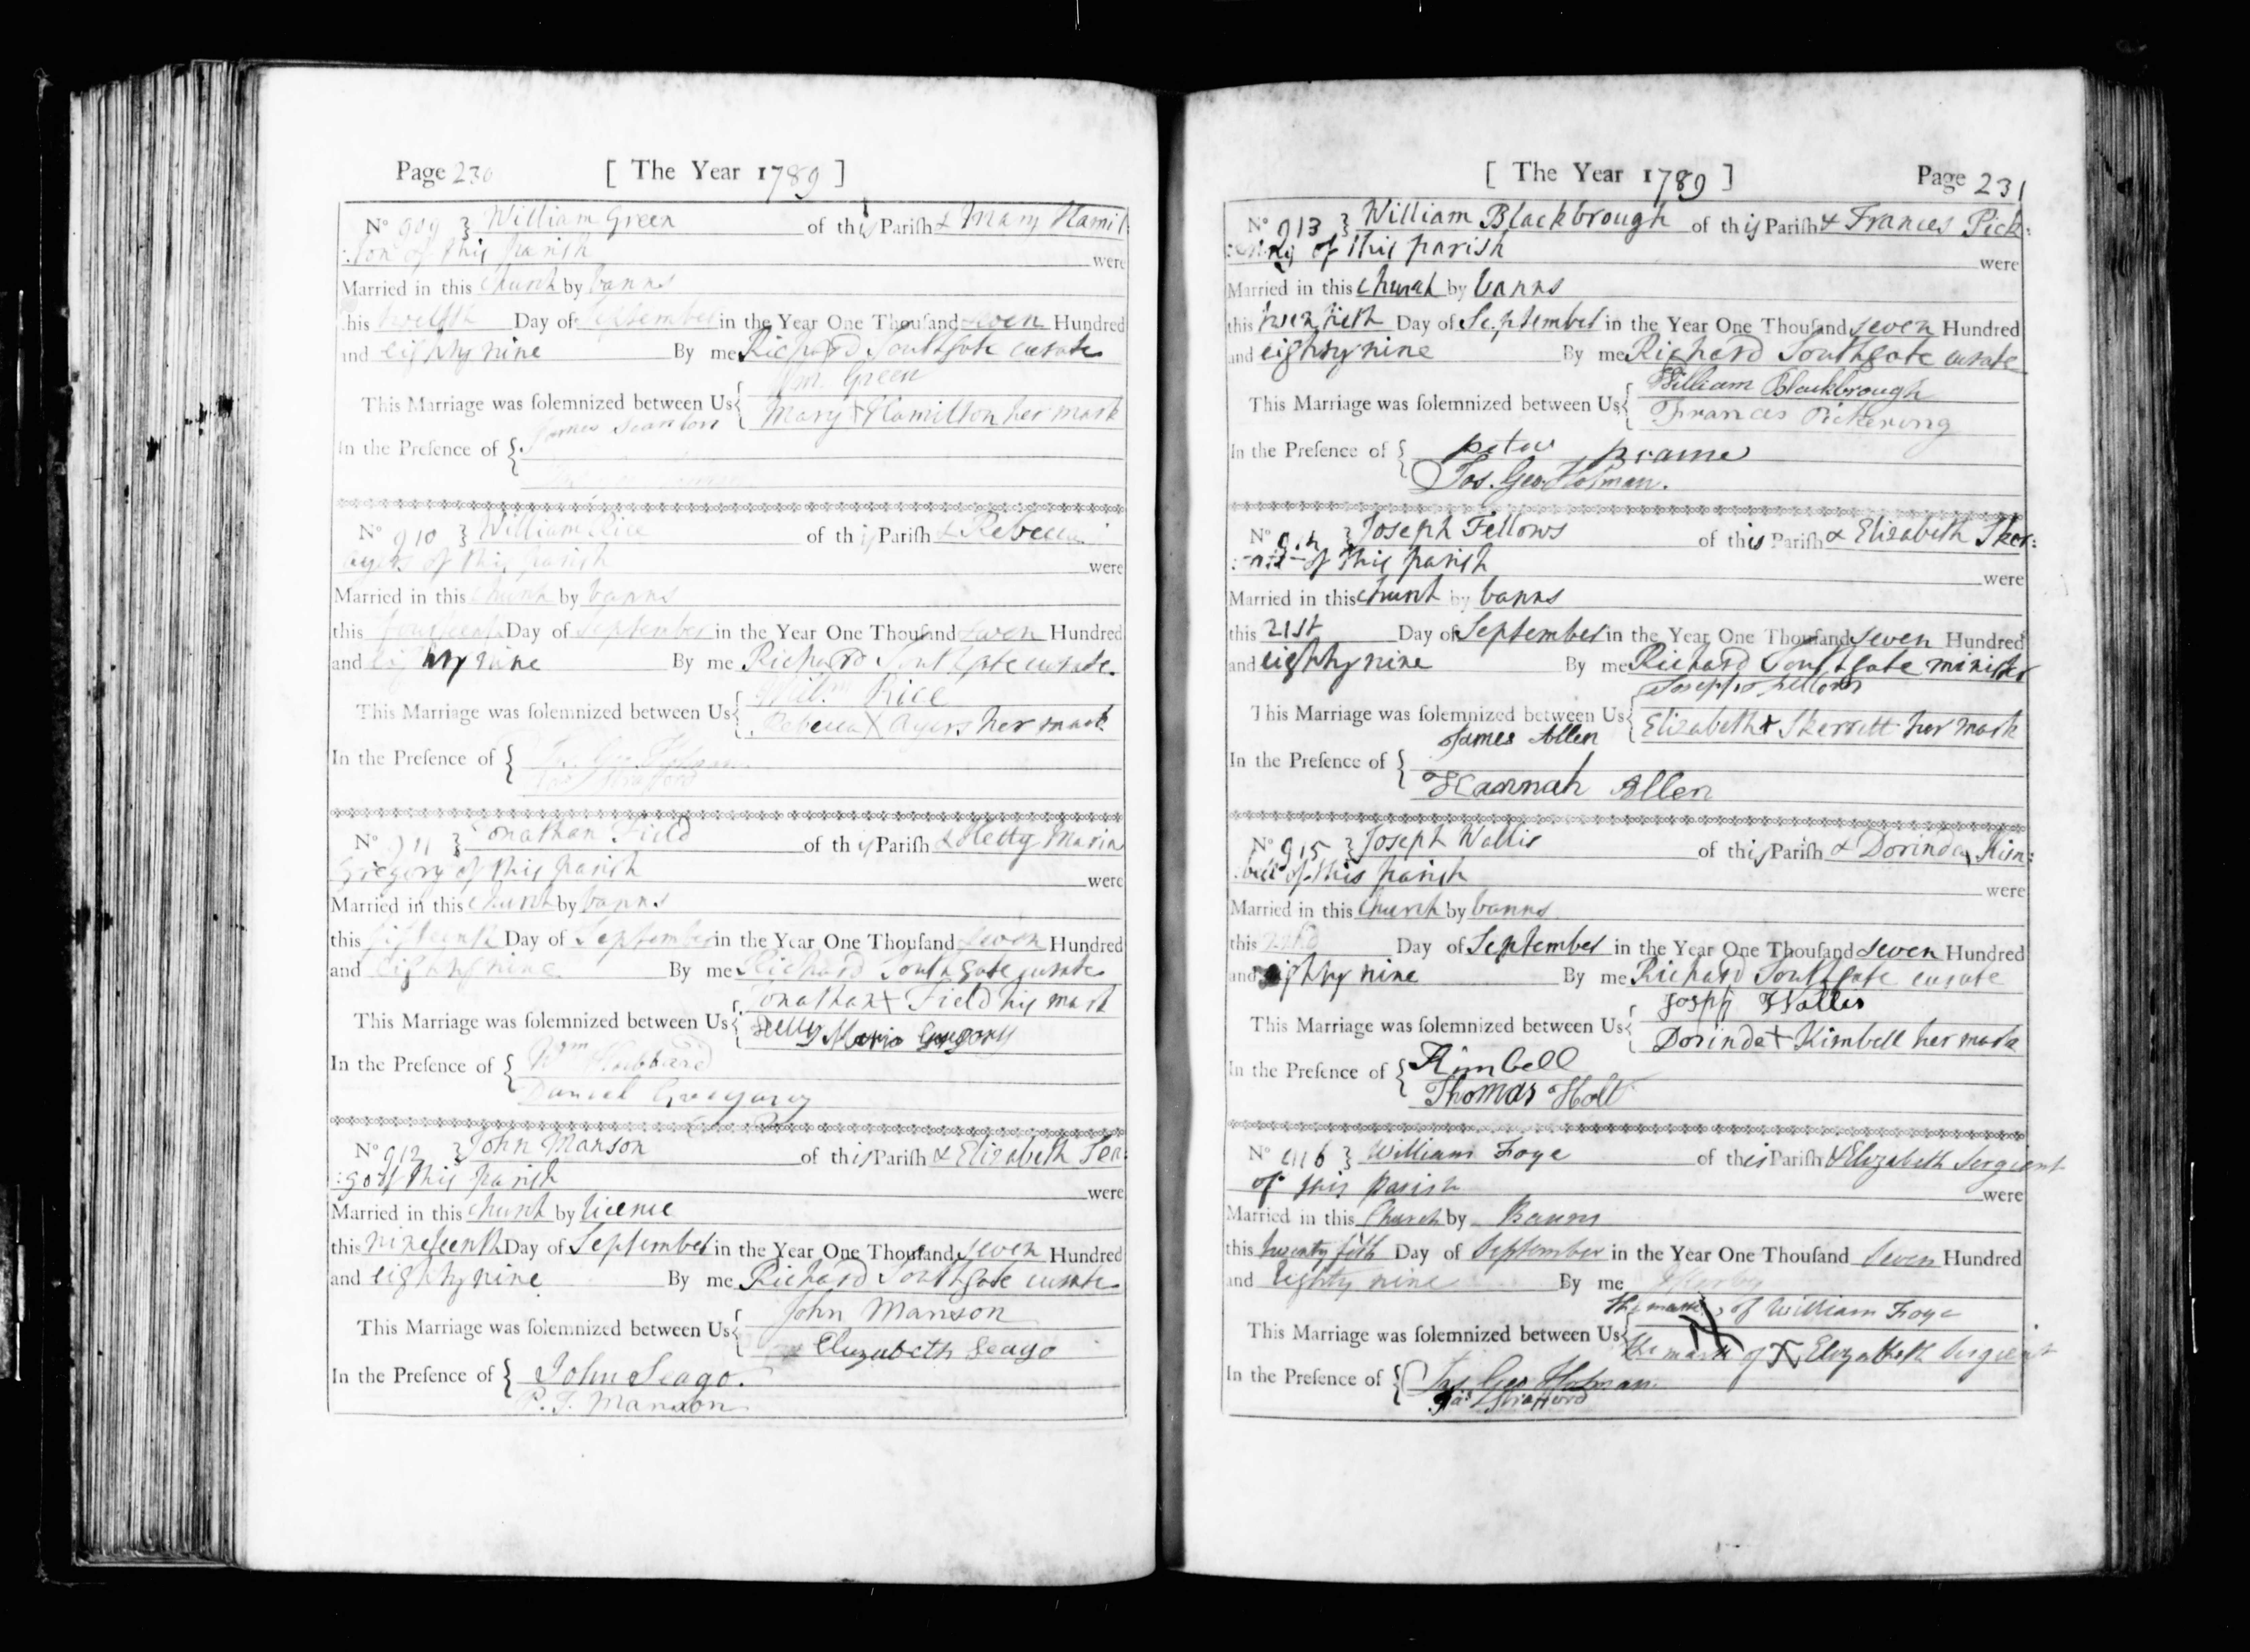 Page 230 [ The Year 1789 ]
No 909 } William Green of this Parish & Mary Hamil:
:ton of this parish were
Married in this Church by banns
this twelfth Day of September in the Year One Thousand seven Hundred
and eighty nine By me Richard Southgate curate
Wm. Green
This Marriage was solemnized between Us { Mary + Hamilton her mark
In the Presence of { James
No 910 } William Rice of this Parish & Rebecca
ayers of this parish were
Married in this Church by banns
this fourteenth Day of September in the Year One Thousand seven Hundred
and eighty nine By me Richard Southgate curate.
Willm Rice
This Marriage was solemnized between Us { Rebecca X Ayers her mark
In the Presence of {
No 911 } Jonathan Field of this Parish & Hetty Maria
Gregory of this parish were
Married in this Church by banns
this fifteenth Day of September in the Year One Thousand seven Hundred
and eighty nine By me Richard Southgate curate
Jonathan + Field his mark
This Marriage was solemnized between Us { Hetty Maria Gregory
In the Presence of { Wm Hubbard
Daniel Gregory
No 912 } John Manson of this Parish & Elizabeth Sea:
:go of this parish were
Married in this Church by licence
this nineteenth Day of September in the Year One Thousand seven Hundred
and eighty nine By me Richard Southgate curate
John Manson
This Marriage was solemnized between Us { Elizabeth Seago
In the Presence of { John Seago.
P. J. Manson
[ The Year 1789 ] Page 231
No 913 } William Blackbrough of this Parish & Frances Pick:
:ering of this parish were
Married in this church by banns
this twentieth Day of September in the Year One Thousand seven Hundred
and eighty nine By me Richard Southgate curate
William Blackbrough
This Marriage was solemnized between Us { Frances Pickering
In the Presence of { peter prame
Jas. Geo. Holman.
No 914 } Joseph Fellows of this Parish & Elizabeth Sker:
:ritt of this parish were
Married in this church by banns
this 21st Day of September in the Year One Thousand seven Hundred
and eighty nine By me Richard Southgate minister
Joseph Fellows
This Marriage was solemnized between Us { Elizabeth + Skerrett her mark
James Allen
In the Presence of {
Hannah Allen
No 915 } Joseph Wallis of this Parish & Dorinda Kim:
:bell of this parish were
Married in this Church by banns
this 22nd Day of September in the Year One Thousand seven Hundred
and eighty nine By me Richard Southgate curate
Josph Wallis
This Marriage was solemnized between Us { Dorinda + Kimbell her mark
In the Presence of { Kimbell
Thomas Holt
No 916 } William Foye of this Parish & Elizabeth Sergient
of this Parish were
Married in this Church by Banns
this twenty fifth Day of September in the Year One Thousand Seven Hundred
and Eighty nine By me
The mark of William Foye
This Marriage was solemnized between Us { the mark of X Elizabeth Sergient
In the Presence of { Jas. Geo Holman.
Jas Strafford